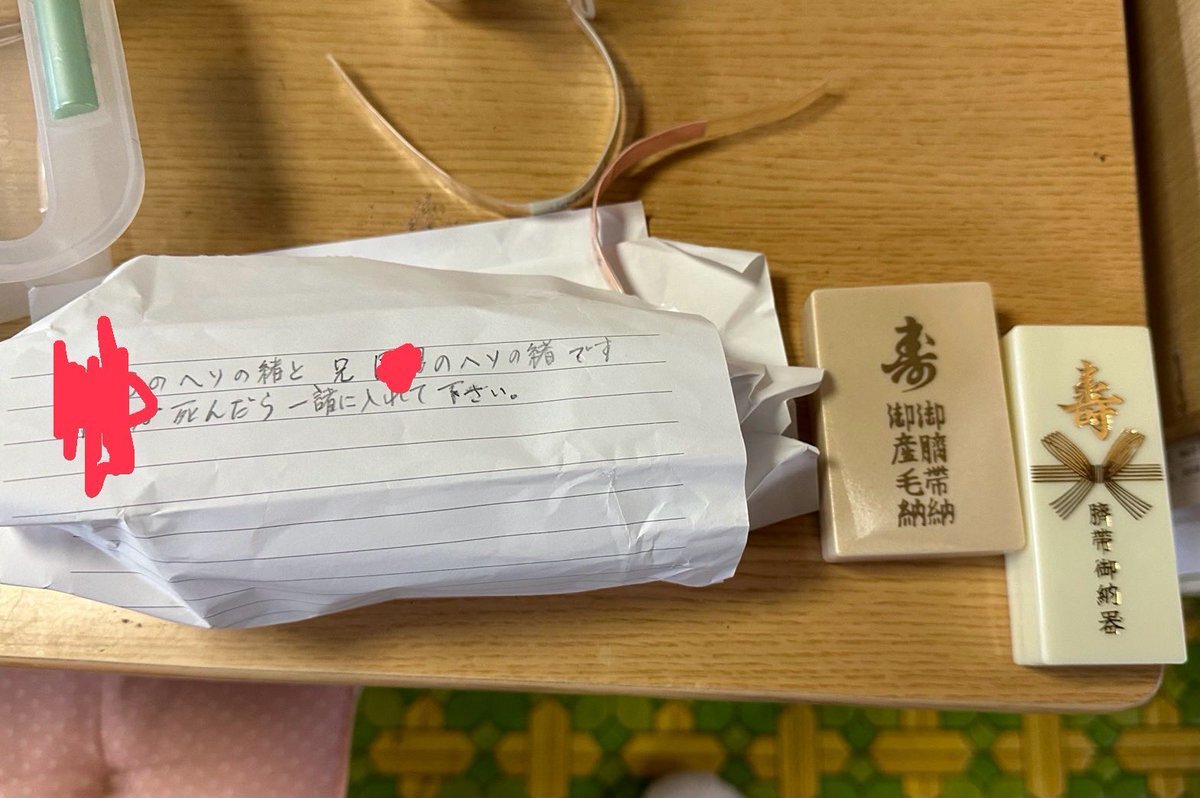 のヘソの緒と 兄 のヘソの緒です
死んだら一諸に入れて下さい。
寿
御臍帯納
御産毛納
寿
臍帯御納器